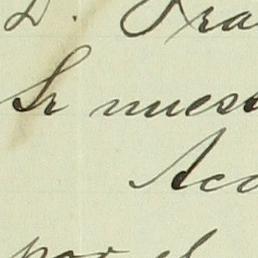 D. Fra
Sr nues
Aco
por el